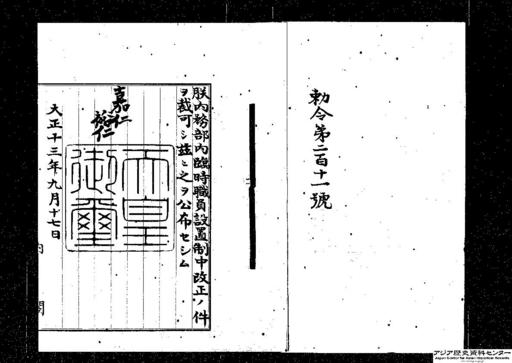 勅令第二百十一號
朕內務部內臨時職員設置制中改正ノ件
ヲ裁可シ茲ニ之ヲ公布セシム
嘉仁
裕仁
天皇
御璽
大正十三年九月十七日
內閣
アジア歴史資料センター
Japan Center for Asian Historical Records